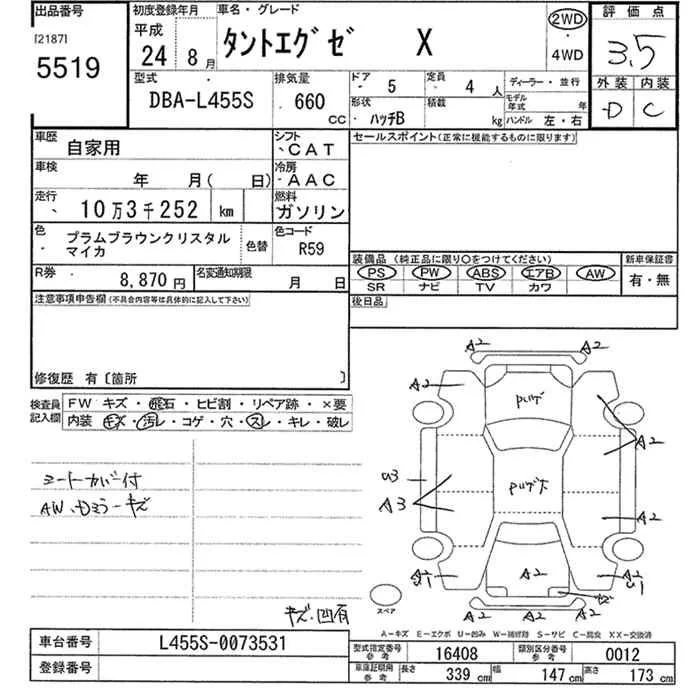 出品番号
[2187]
5519
初度登録年月
平成
24 8月
車名・グレード
タントエグゼ X
2WD
・
4WD
評価点
3.5
外装 内装
D C
型式
DBA-L455S
排気量
660 CC
ドア 5
形状 ハッチB
定員 4 人
積載 kg
ディーラー・並行
モデル年式 年
ハンドル 左・右
車歴 自家用
シフト CAT
車検 年 月( 日)
冷房 AAC
走行 10万3千252 km
燃料 ガソリン
色 プラムブラウンクリスタル
マイカ
色替
色コード R59
R券 8,870円
名変通知期限 月 日
セールスポイント(正常に機能するものに限ります)
装備品 (純正品に限り〇をつけてください)
PS PW ABS エアB AW
SR ナビ TV カワ
新車保証書
有・無
後日品
注意事項申告欄(不具合内容等は具体的に記入して下さい)
修復歴 有〔箇所 〕
検査員
記入欄
FW キズ・飛石・ヒビ割・リペア跡・×要
内装 キズ・汚レ・コゲ・穴・スレ・キレ・破レ
シートカバー付
AW、Dミラーキズ
キズ、凹有
A2 A2
A2
A2
U3
A3
A2
A2
A2 A2
スペア
A-キズ E-エクボ U-凹み W-補修跡 S-サビ C-腐食 XX-交換済
車台番号 L455S-0073531
登録番号
型式指定番号 参考 16408
類別区分番号 参考 0012
車庫証明用 参考 長さ 339 cm 幅 147 cm 高さ 173 cm